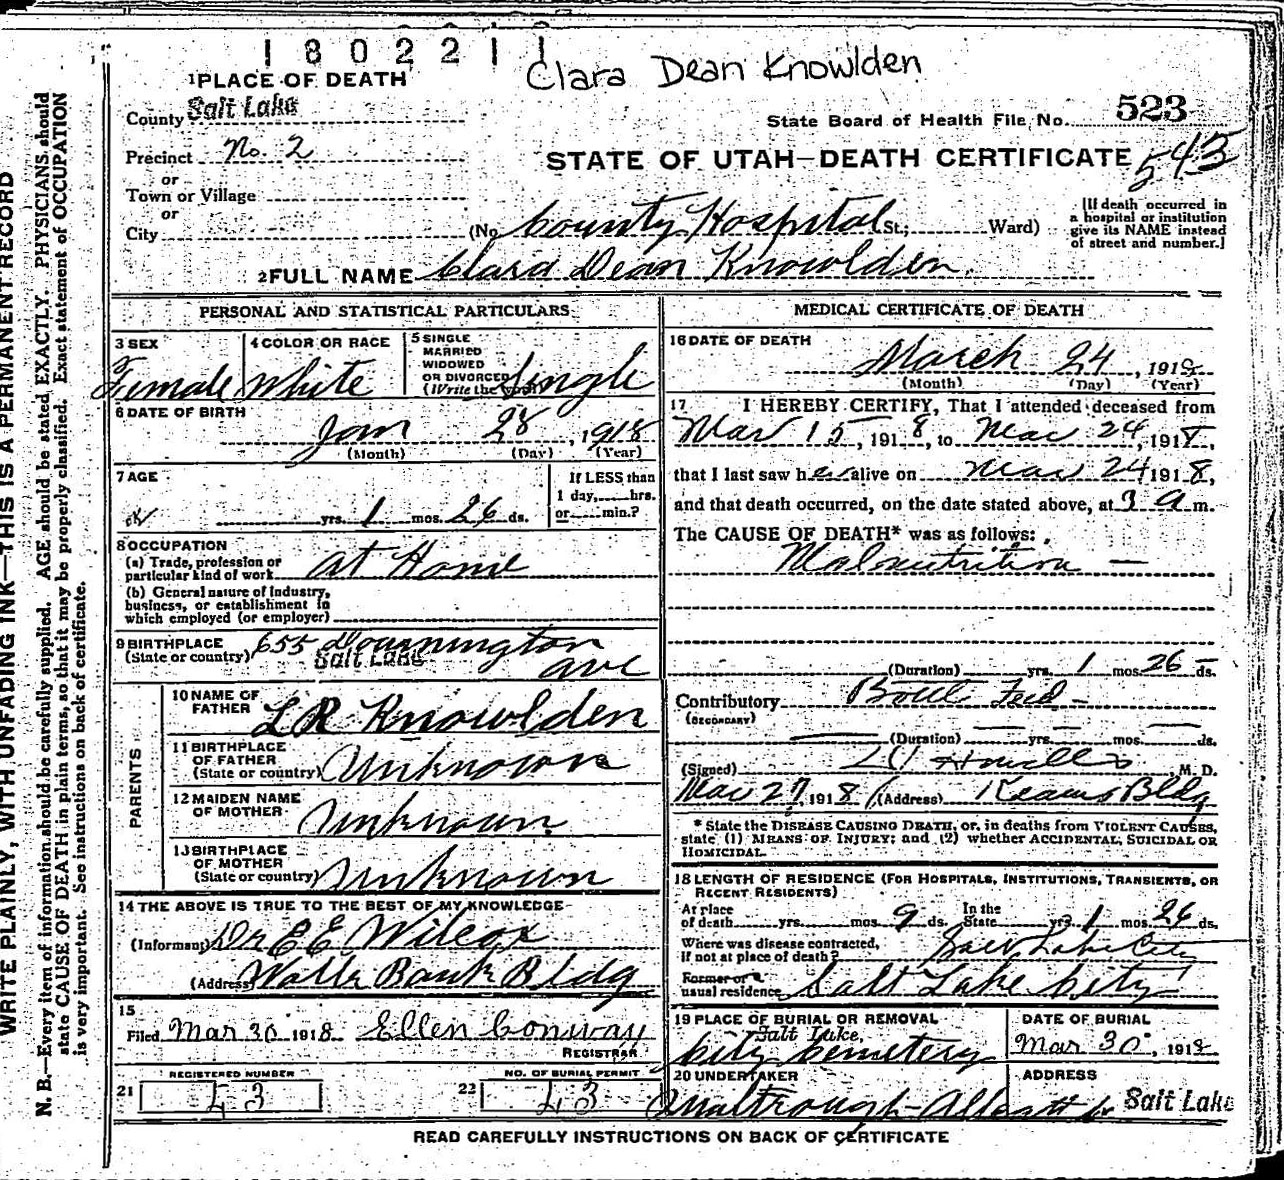 1 8 0 2 2 1 1
Clara Dean Knowlden
1 PLACE OF DEATH
County Salt Lake
State Board of Health File No. 523
543
Precinct No. 2
STATE OF UTAH—DEATH CERTIFICATE
or
Town or Village
or
City
(No. County Hospital St.; Ward)
[If death occurred in
a hospital or institution
give its NAME instead
of street and number.]
2 FULL NAME Clara Dean Knowlden
PERSONAL AND STATISTICAL PARTICULARS
3 SEX
Female
4 COLOR OR RACE
White
5 SINGLE
MARRIED
WIDOWED
OR DIVORCED
(Write the word)
Single
6 DATE OF BIRTH
Jan 28, 1918
(Month) (Day) (Year)
7 AGE
yrs. 1 mos. 26 ds.
If LESS than
1 day, hrs.
or min.?
8 OCCUPATION
(a) Trade, profession or
particular kind of work at Home
(b) General nature of Industry,
business, or establishment in
which employed (or employer)
9 BIRTHPLACE
(State or country) 655 Downington
Salt Lake ave
PARENTS
10 NAME OF
FATHER L R Knowlden
11 BIRTHPLACE
OF FATHER
(State or country) Unknown
12 MAIDEN NAME
OF MOTHER Unknown
13 BIRTHPLACE
OF MOTHER
(State or country) Unknown
14 THE ABOVE IS TRUE TO THE BEST OF MY KNOWLEDGE
(Informant) Dr E E Wilcox
(Address) Walker Bank Bldg
15
Filed Mar 30 1918 Ellen Conway
REGISTRAR
REGISTERED NUMBER
21
43
NO. OF BURIAL PERMIT
22
43
MEDICAL CERTIFICATE OF DEATH
16 DATE OF DEATH
March 24, 1918
(Month) (Day) (Year)
17 I HEREBY CERTIFY, That I attended deceased from
Mar 15, 1918, to Mar 24, 1918,
that I last saw her alive on Mar 24 1918,
and that death occurred, on the date stated above, at 3 a m.
The CAUSE OF DEATH* was as follows:
Malnutrition —
(Duration) yrs. 1 mos. 26 ds.
Contributory Bottle Feed —
(SECONDARY)
(Duration) yrs. mos. ds.
(Signed) M. D.
Mar 27, 1918 (Address) Kearns Bldg
* State the DISEASE CAUSING DEATH, or, in deaths from VIOLENT CAUSES,
state (1) MEANS OF INJURY; and (2) whether ACCIDENTAL, SUICIDAL OR
HOMICIDAL.
18 LENGTH OF RESIDENCE (FOR HOSPITALS, INSTITUTIONS, TRANSIENTS, OR
RECENT RESIDENTS)
At place
of death yrs. mos. 9 ds.
In the
State yrs. 1 mos. 26 ds.
Where was disease contracted,
if not at place of death? Salt Lake City
Former or
usual residence Salt Lake City
19 PLACE OF BURIAL OR REMOVAL
Salt Lake,
City Cemetery
DATE OF BURIAL
Mar 30, 1918
20 UNDERTAKER
ADDRESS
Salt Lake
READ CAREFULLY INSTRUCTIONS ON BACK OF CERTIFICATE
WRITE PLAINLY, WITH UNFADING INK—THIS IS A PERMANENT RECORD
N. B.—Every item of information should be carefully supplied. AGE should be stated EXACTLY. PHYSICIANS should
state CAUSE OF DEATH in plain terms, so that it may be properly classified. Exact statement of OCCUPATION
is very important. See instructions on back of certificate.